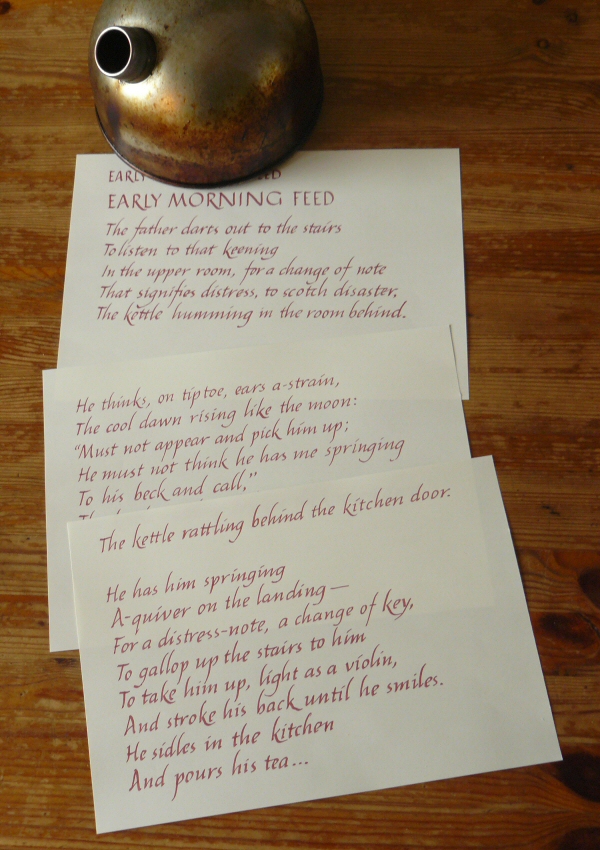 EARLY
EARLY MORNING FEED
The father darts out to the stairs
To listen to that keening
In the upper room, for a change of note
That signifies distress, to scotch disaster,
The kettle humming in the room behind.
He thinks, on tiptoe, ears a-strain,
The cool dawn rising like the moon:
"Must not appear and pick him up;
He must not think he has me springing
To his beck and call,"
The kettle rattling behind the kitchen door.
He has him springing
A-quiver on the landing—
For a distress-note, a change of key,
To gallop up the stairs to him
To take him up, light as a violin,
And stroke his back until he smiles.
He sidles in the kitchen
And pours his tea...